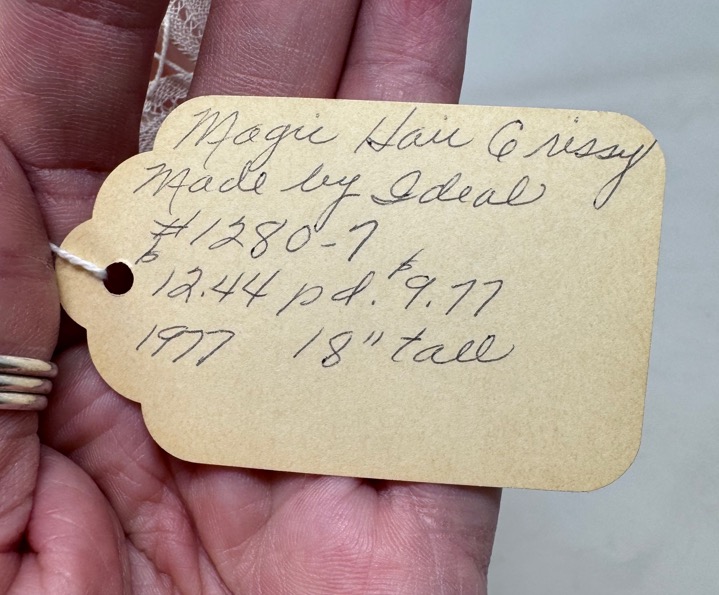 Magic Hair Crissy
Made by Ideal
#1280-7
$12.44 pd. $9.77
1977 18" tall